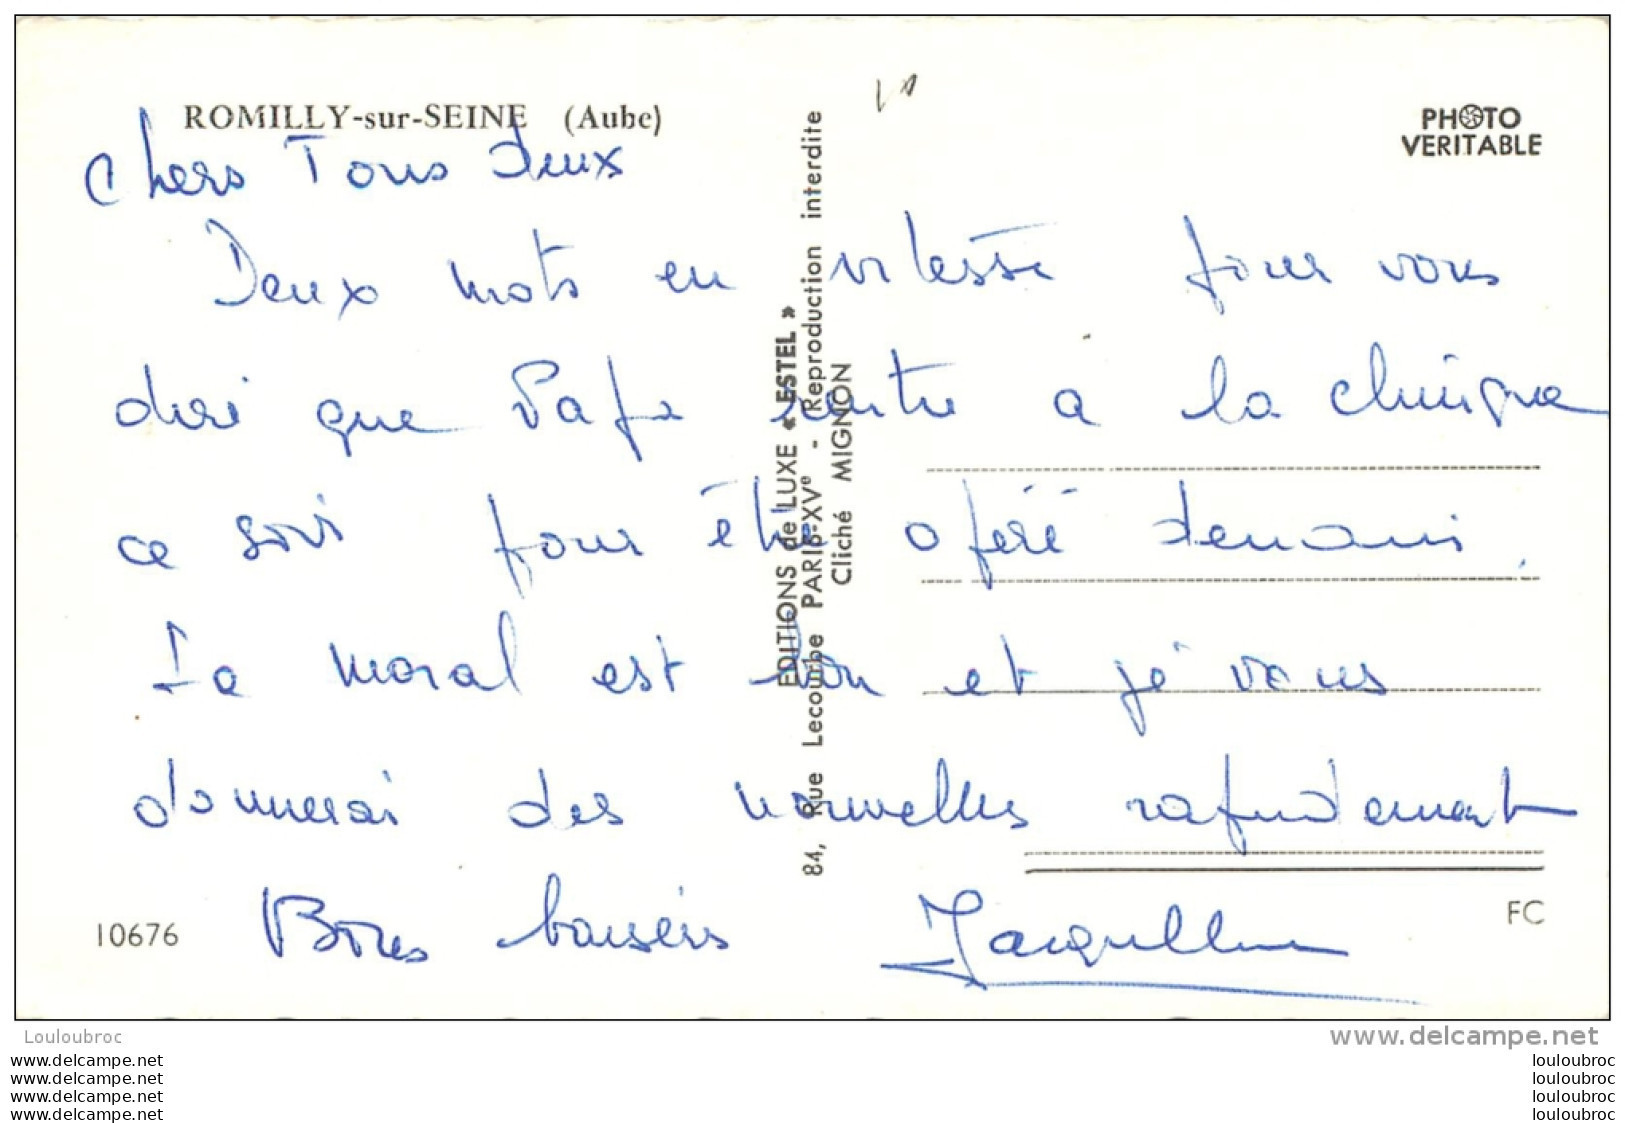 ROMILLY-sur-SEINE (Aube)
PHOTO
VERITABLE
Chers Tous deux
Deux mots en vitesse pour vous
dire que Papa rentre a la clinique
ce soir pour être opéré demain.
Le moral est bon et je vous
donnerai des nouvelles rapidement
Bons baisers Jacqueline
EDITIONS de LUXE « ESTEL »
84, Rue Lecourbe PARIS-XVe - Reproduction interdite
Cliché MIGNON
10676
FC
Louloubroc
www.delcampe.net
www.delcampe.net
www.delcampe.net
www.delcampe.net
www.delcampe.net
louloubroc
louloubroc
louloubroc
louloubroc